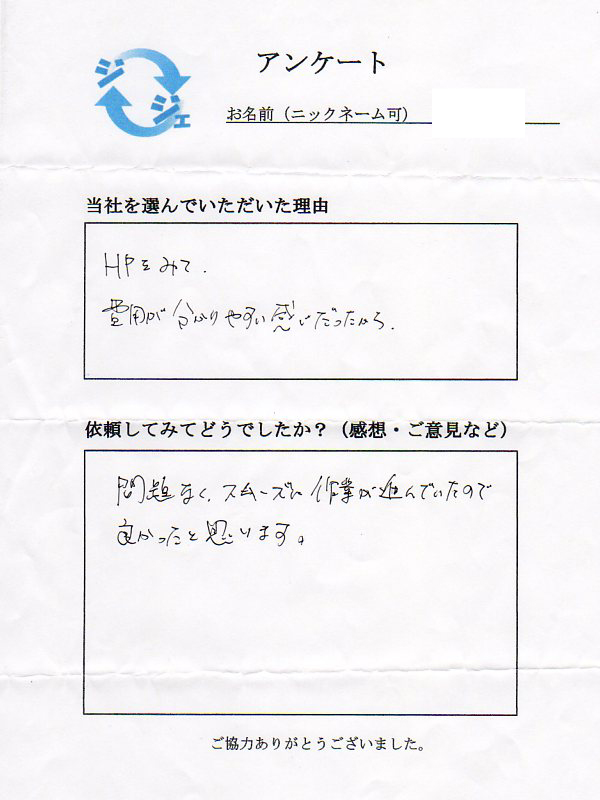 アンケート
ジジェ
お名前（ニックネーム可）
当社を選んでいただいた理由
HPをみて.
費用が分かりやすい感じだったから.
依頼してみてどうでしたか？（感想・ご意見など）
問題なく、スムーズに作業が進んでいたので
良かったと思います。
ご協力ありがとうございました。